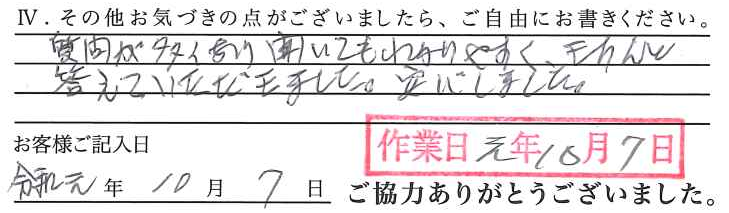 Ⅳ．その他お気づきの点がございましたら、ご自由にお書きください。
質問が多々あり聞いてもわかりやすく、きちんと
答えていただきました。安心しました。
お客様ご記入日
作業日 元年10月7日
令和元年 10月 7日 ご協力ありがとうございました。